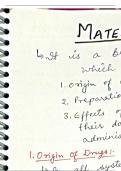 MATE
It is a b
which
1. Origin of
2. Preparation
3. Effects o
their do
adminis
1. Origin of Drugs:
all sys